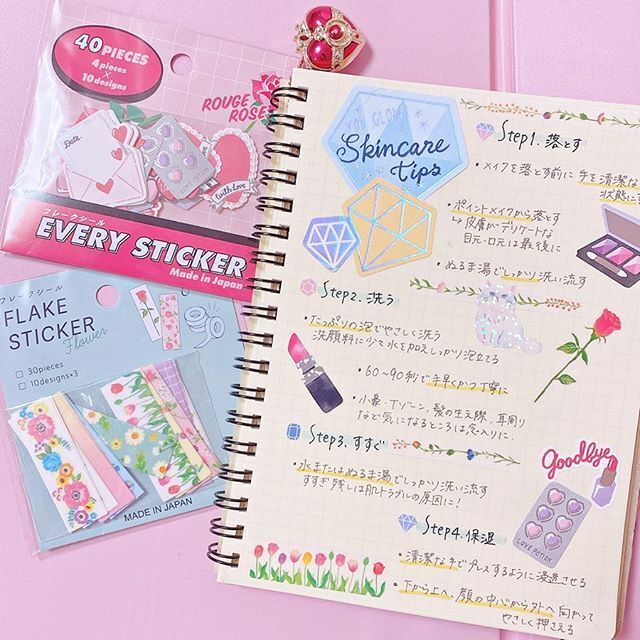 40 PIECES
4 pieces
×
10 designs
ROUGE
ROSE
Date
with Love
フレークシール
EVERY STICKER
Made in Japan
フレークシール
FLAKE
STICKER
Flower
30pieces
10designs×3
MADE IN JAPAN
YOU GLOW
Skincare
tips
Step1. 落とす
・メイクを落とす前に手を清潔な
状態に
・ポイントメイクから落とす
↳皮膚がデリケートな
目元・口元は最後に
・ぬるま湯でしっかり洗い流す
Step2. 洗う
・たっぷりの泡でやさしく洗う
洗顔料に少々水を加えしっかり泡立てる
・60〜90秒で手早くかつ丁寧に
・小鼻・Tゾーン、髪の生え際、耳周り
など気になるところは念入りに.
Step3. すすぐ
・水またはぬるま湯でしっかり洗い流す
すすぎ残しは肌トラブルの原因に!
Goodbye
LOVE POTION
Step4. 保湿
・清潔な手でプレスするように浸透させる
・下から上へ、顔の中心から外へ向かって
やさしく押さえる